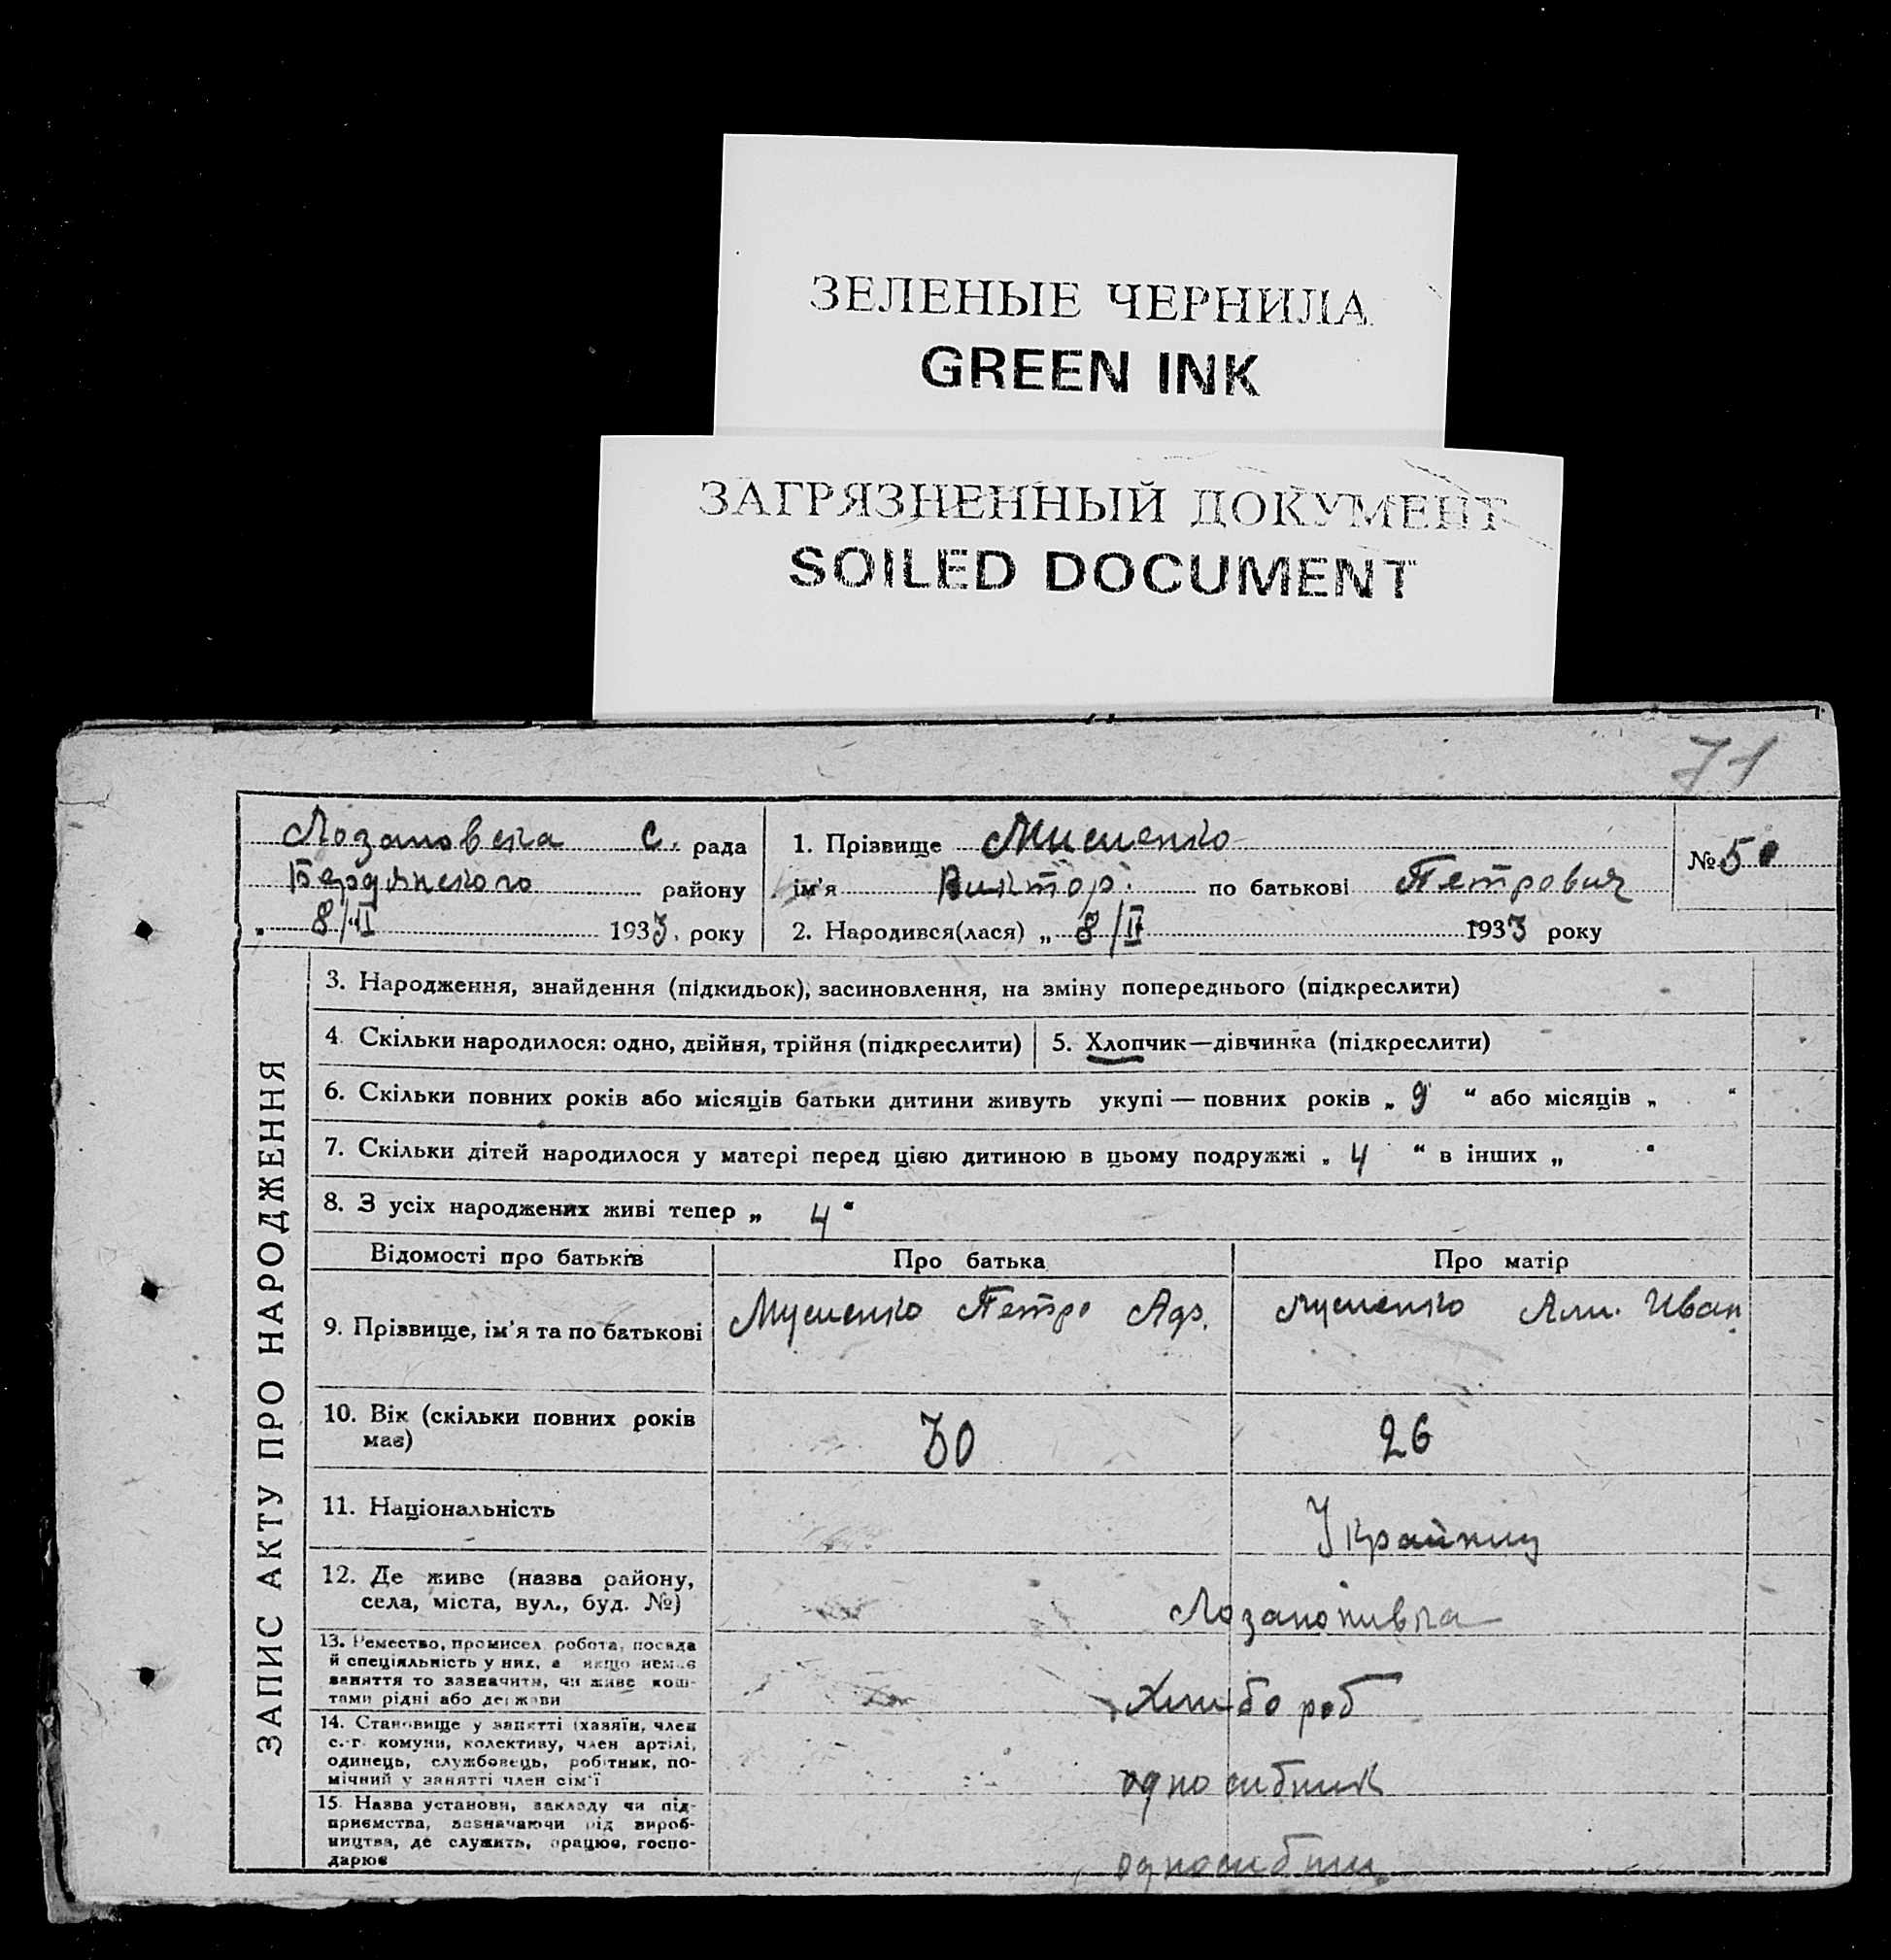 ЗЕЛЕНЫЕ ЧЕРНИЛА
GREEN INK
ЗАГРЯЗНЕННЫЙ ДОКУМЕНТ
SOILED DOCUMENT
71
Лозановська С. рада
Бердянского району
„ 8/II 1933 року
1. Прізвище
ім'я Виктор по батькові Петрович
2. Народився(лася) „ 8/II 1933 року
№ 50
ЗАПИС АКТУ ПРО НАРОДЖЕННЯ
3. Народження, знайдення (підкидьок), засиновлення, на зміну попереднього (підкреслити)
4. Скільки народилося: одно, двійня, трійня (підкреслити)
5. Хлопчик—дівчинка (підкреслити)
6. Скільки повних років або місяців батьки дитини живуть укупі — повних років „ 9 “ або місяців „ “
7. Скільки дітей народилося у матері перед цією дитиною в цьому подружжі „ 4 “ в інших „ “
8. З усіх народжених живі тепер „ 4 “
Відомості про батьків Про батька Про матір
9. Прізвище, ім'я та по батькові Мусиенко Петро Мусиенко Иван
10. Вік (скільки повних років
має)
30 26
11. Національність
12. Де живе (назва району,
села, міста, вул., буд. №)
13. Ремество, промисел, робота, посада
й спеціяльність у них, а якщо немає
заняття то зазначити, чи живе кош-
тами рідні або держави
Хлибороб
14. Становище у занятті (хазяїн, член
с.-г. комуни, колективу, член артілі,
одинець, службовець, робітник, по-
мічний у занятті член сім'ї
односибник
15. Назва установи, закладу чи під-
приємства, зазначаючи рід вироб-
ництва, де служить, працює, госпо-
дарює